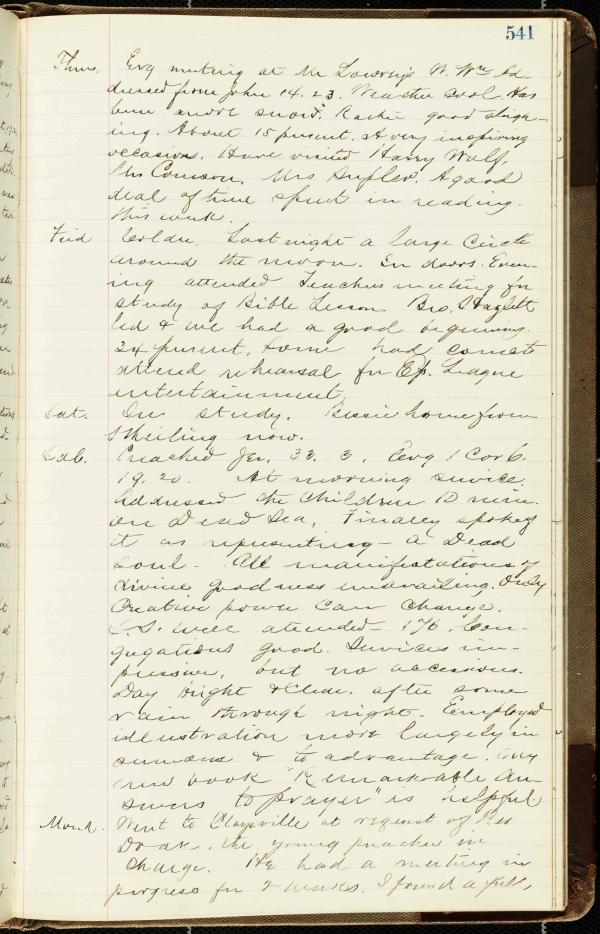 541
Thurs. Evg meeting at Mr Lowrey's W. Wm Ad-
dressed from John 14. 23. Weather cool. Has
been more snow. Rather good sleigh-
ing. About 15 present. A very inspiring
occasion. Have visited Harry Wulf,
Mrs Mrs Hupler. A good
deal of time spent in reading.
this week.
Frid Colder. Last night a large circle
around the moon. In doors. Even-
ing attended Teachers meeting for
study of Bible Lesson. Bro. Hazlett
led & we had a good beginning.
24 present, some had come to
attend rehearsal for Ep. League
entertainment.
Sat. In study. Bessie home from
Wheeling now.
Sab. Preached Jer. 33. 3. Evg 1 Cor 6.
19. 20. At morning service
addressed the children 10 min.
on Dead Sea, Finally spoke of
it as representing a Dead
Soul - All manifestations of
divine goodness unavailing. Only
Creative power can change.
S.S. well attended - 176. Con-
gregations good. Services im-
pressive, but no accessions.
Day bright & Clear. after some
rain through night. Employed
illustration more largely in
sermons & to advantage. My
new book "Remarkable An-
swers to prayer" is helpful
Mond. Went to Claysville at request of Bro
Doak. the young preacher in
charge. He had a meeting in
progress for 2 weeks. I found a full,